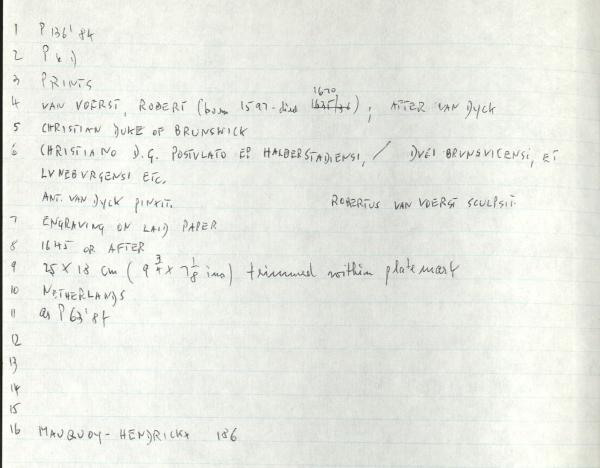 1 P 136'84
2 P
3 PRINTS
1670
4 VAN VOERST, ROBERT (born 1597 - died 1635/36), AFTER VAN DYCK
5 CHRISTIAN DUKE OF BRUNSWICK
6 CHRISTIANO D.G. POSTULATO EP HALBERSTADIENSI, / DVCI BRVNSVICENSI, ET
LVNEBVRGENSI ETC.
ANT. VAN DYCK PINXIT. ROBERTUS VAN VOERST SCULPSIT
7 ENGRAVING ON LAID PAPER
8 1645 OR AFTER
9 25 X 18 cm (9 3/4 x 7 1/8 ins) trimmed within platemark
10 NETHERLANDS
11 as P 63'84
12
13
14
15
16 MAUQUOY-HENDRICKX 186